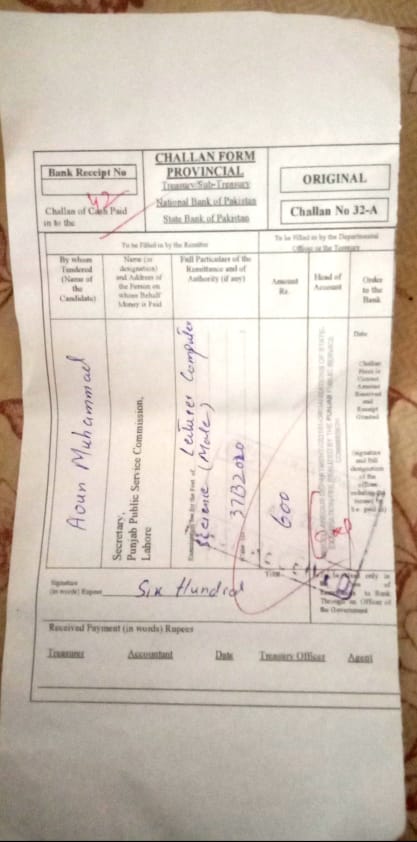 Bank Receipt No
42
Challan of Cash Paid
in to the
CHALLAN FORM
PROVINCIAL
Treasury/Sub-Treasury
National Bank of Pakistan
State Bank of Pakistan
ORIGINAL
Challan No 32-A
To be Filled in by the Remitter
To be Filled in by the Departmental
Officer or the Treasury
By whom
Tendered
(Name of
the
Candidate)
Name (or
designation)
and Address of
the Person on
whose Behalf
Money is Paid
Full Particulars of the
Remittance and of
Authority (if any)
Amount
Rs.
Head of
Account
Order
to the
Bank
Aoun Muhammad
Secretary,
Punjab Public Service Commission,
Lahore
Lecturer Computer
Science (Male)
37B2020
600
Date
Challan
Correct
Received
and
Receipt
Granted
Signature
and full
designation
of the
officer
Signature
(in words) Rupees
Six Hundred
only in
of
to Bank
Through an Officer of
the Government
Received Payment (in words) Rupees
Treasurer Accountant Date Treasury Officer Agent